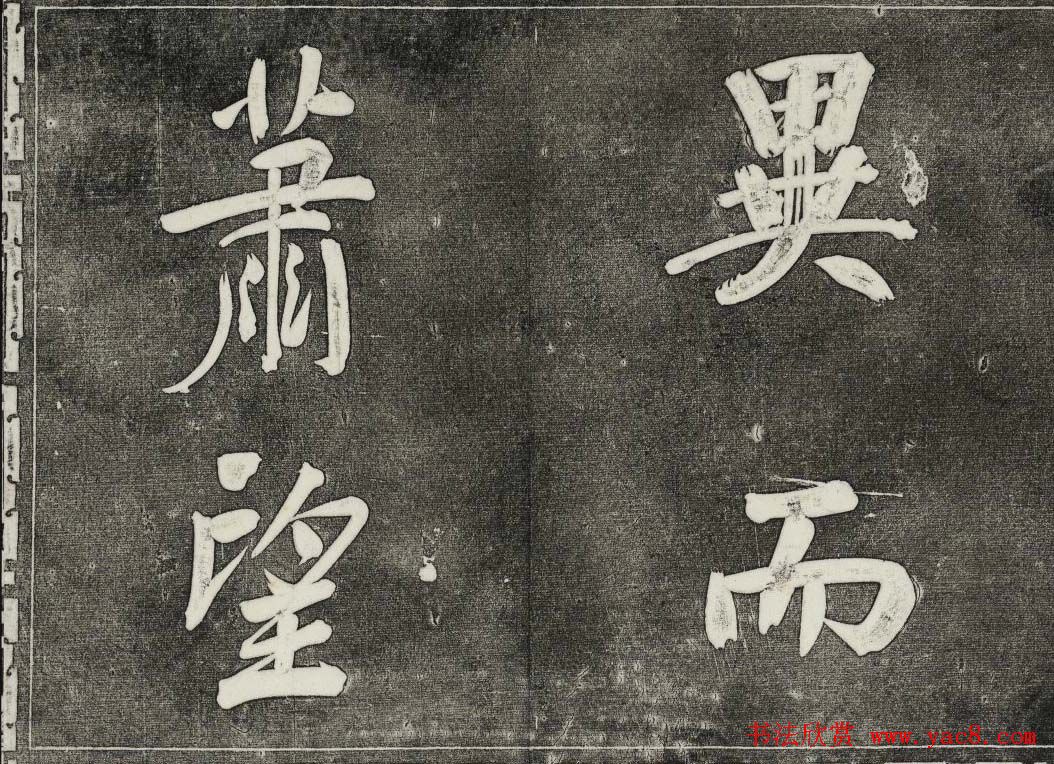 異而
蕭望
书法欣赏 www.yac8.com